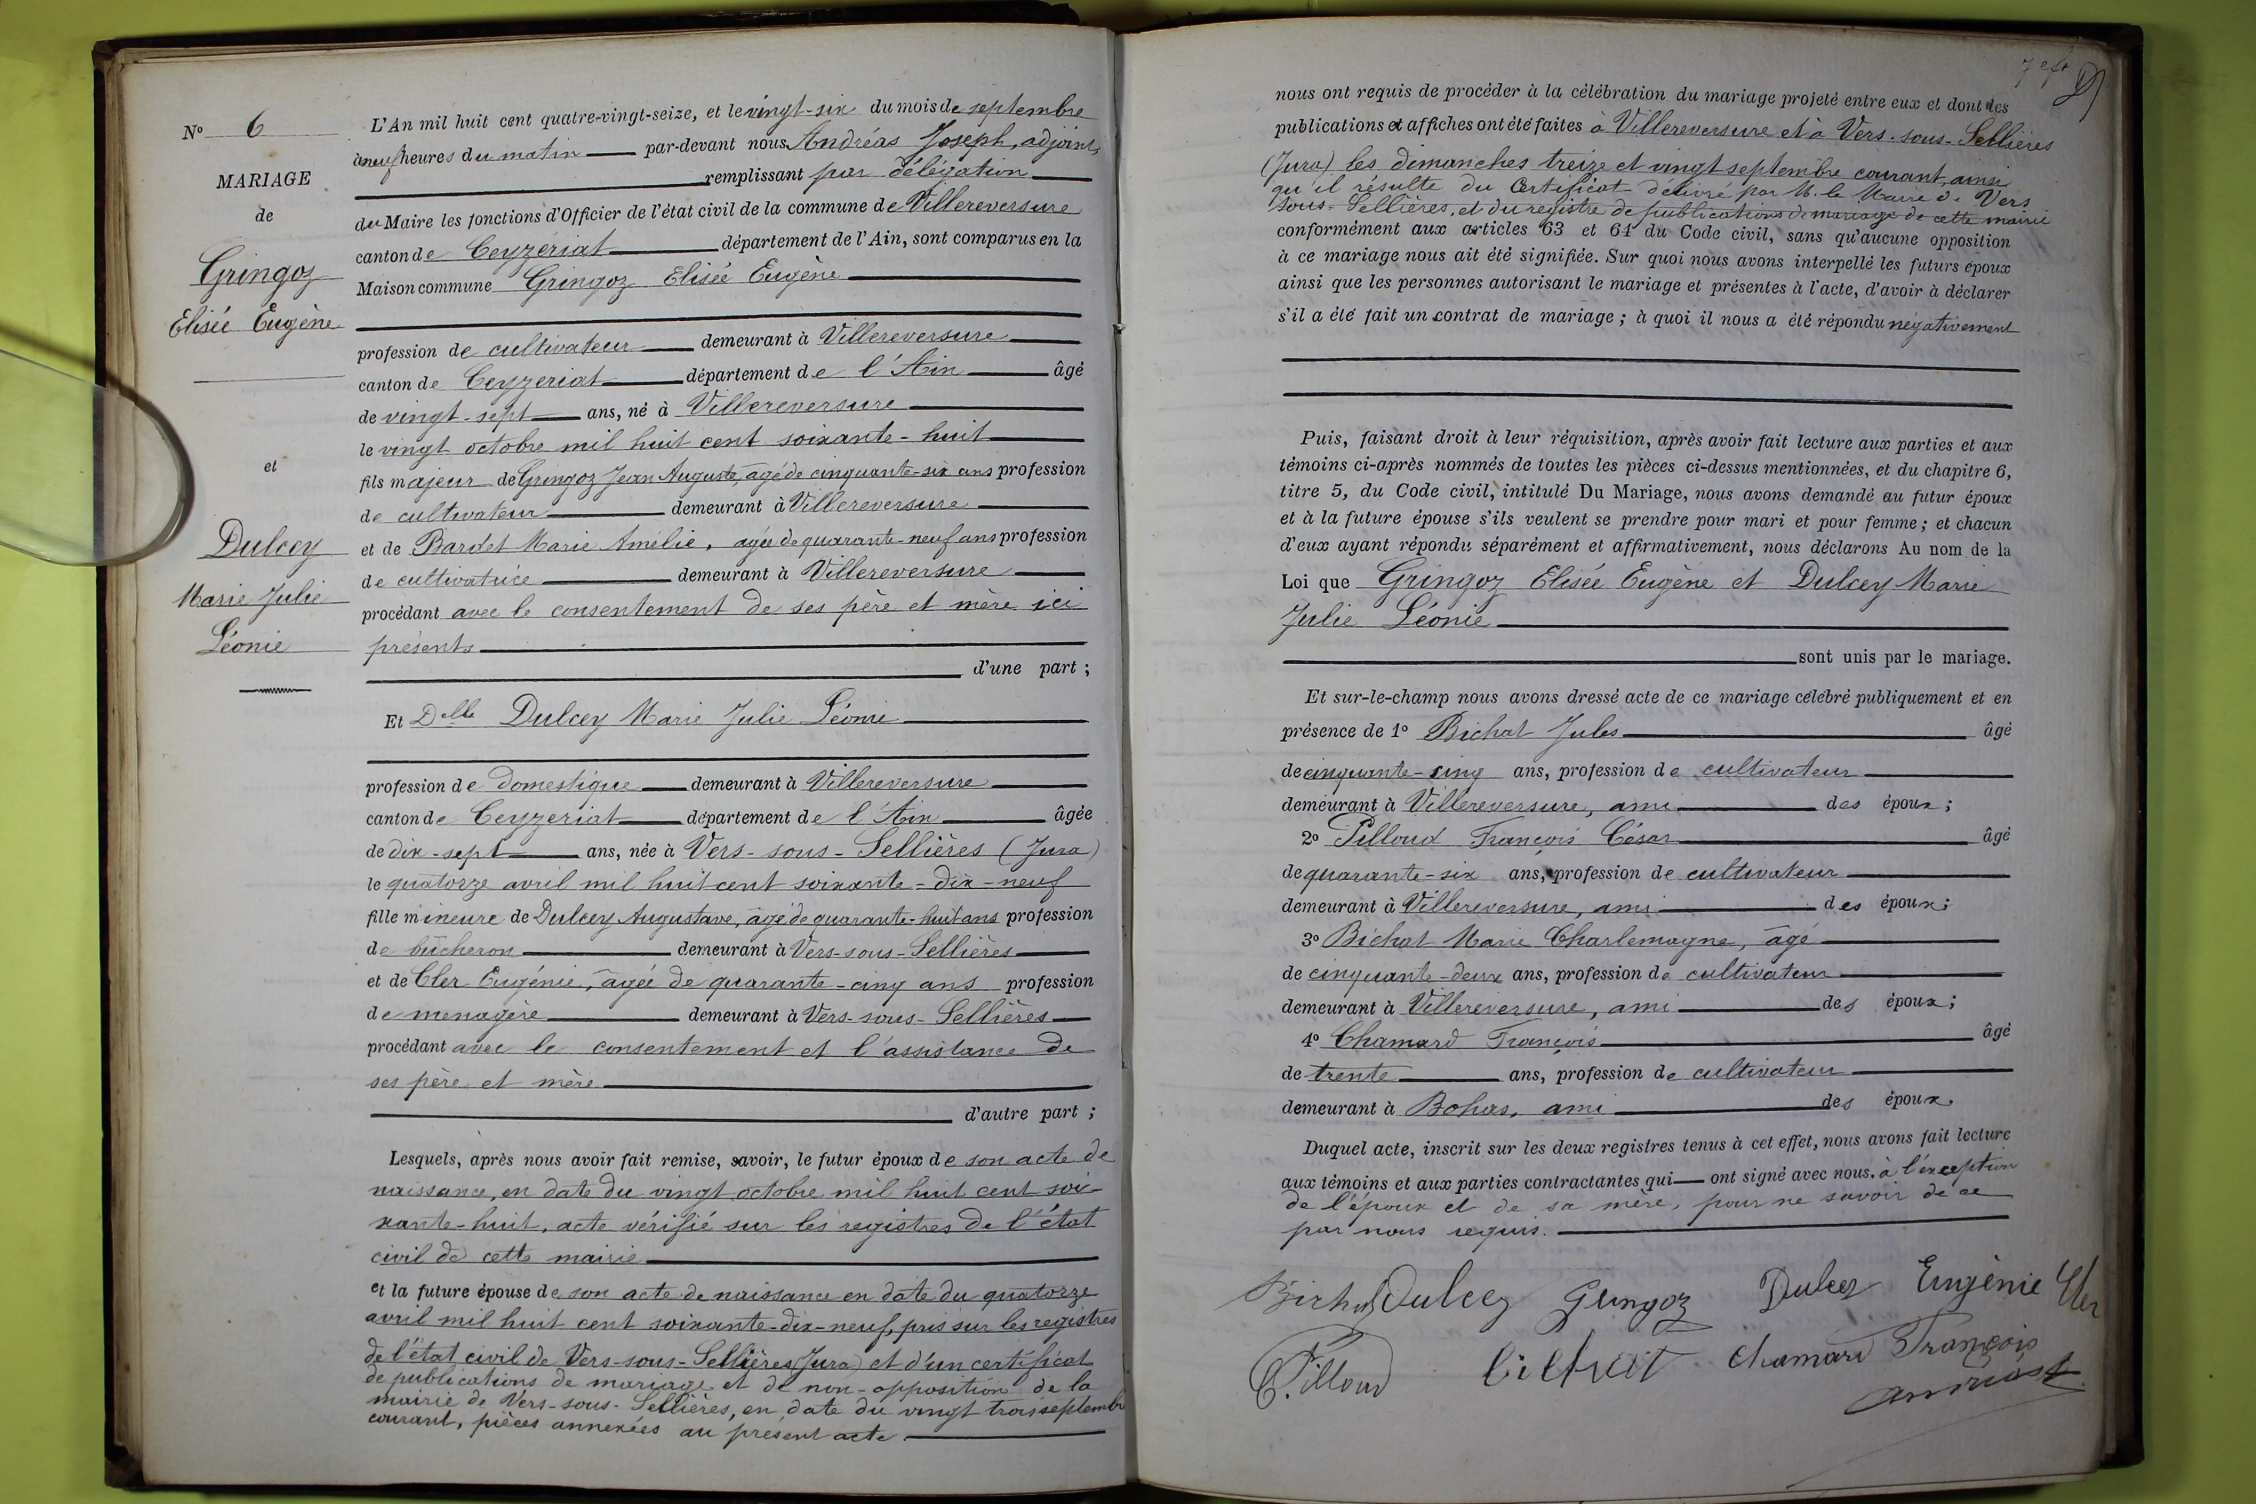 N° 6
MARIAGE
de
Gringoz
Elisée Eugène
et
Dulcey
Marie Julie
Léonie
L'An mil huit cent quatre-vingt-seize, et le vingt-six du mois de septembre
à neuf heures du matin par-devant nous Andréas Joseph, adjoint,
remplissant par délégation
du Maire les fonctions d'Officier de l'état civil de la commune de Villereversure
canton de Ceyzériat département de l'Ain, sont comparus en la
Maison commune Gringoz Elisée Eugène
profession de cultivateur demeurant à Villereversure
canton de Ceyzeriat département de l'Ain âgé
de vingt-sept ans, né à Villereversure
le vingt octobre mil huit cent soixante-huit
fils majeur de Gringoz Jean Auguste, âgé de cinquante-six ans profession
de cultivateur demeurant à Villereversure
et de Bardet Marie Amélie, agée de quarante-neuf ans profession
de cultivatrice demeurant à Villereversure
procédant avec le consentement de ses père et mère ici
présents
d'une part ;
Et Delle Dulcey Marie Julie Léonie
profession de domestique demeurant à Villereversure
canton de Ceyzeriat département de l'Ain âgée
de dix-sept ans, née à Vers-sous-Sellières (Jura)
le quatorze avril mil huit cent soixante-dix-neuf
fille mineure de Dulcey Augustave, âgé de quarante-huit ans profession
de bûcheron demeurant à Vers-sous-Sellières
et de Cler Eugénie, âgée de quarante-cinq ans profession
de ménagère demeurant à Vers-sous-Sellières
procédant avec le consentement et l'assistance de
ses père et mère
d'autre part ;
Lesquels, après nous avoir fait remise, savoir, le futur époux de son acte de
naissance, en date du vingt octobre mil huit cent soi-
xante-huit, acte vérifié sur les registres de l'état
civil de cette mairie
et la future épouse de son acte de naissance en date du quatorze
avril mil huit cent soixante-dix-neuf, pris sur les registres
de l'état civil de Vers-sous-Sellières (Jura) et d'un certificat
de publications de mariage et de non-opposition de la
mairie de Vers-sous-Sellières, en date du vingt trois septembre
courant, pièces annexées au présent acte
nous ont requis de procéder à la célébration du mariage projeté entre eux et dont les
publications et affiches ont été faites à Villereversure et à Vers-sous-Sellières
(Jura) les dimanches treize et vingt septembre courant, ainsi
qu'il résulte du Certificat délivré par M. le Maire de Vers
sous-Sellières, et du registre de publications de mariage de cette mairie
conformément aux articles 63 et 64 du Code civil, sans qu'aucune opposition
à ce mariage nous ait été signifiée. Sur quoi nous avons interpellé les futurs époux
ainsi que les personnes autorisant le mariage et présentes à l'acte, d'avoir à déclarer
s'il a été fait un contrat de mariage ; à quoi il nous a été répondu négativement
Puis, faisant droit à leur réquisition, après avoir fait lecture aux parties et aux
témoins ci-après nommés de toutes les pièces ci-dessus mentionnées, et du chapitre 6,
titre 5, du Code civil, intitulé Du Mariage, nous avons demandé au futur époux
et à la future épouse s'ils veulent se prendre pour mari et pour femme ; et chacun
d'eux ayant répondu séparément et affirmativement, nous déclarons Au nom de la
Loi que Gringoz Elisée Eugène et Dulcey Marie
Julie Léonie
sont unis par le mariage.
Et sur-le-champ nous avons dressé acte de ce mariage célébré publiquement et en
présence de 1° Bichat Jules âgé
de cinquante-cinq ans, profession de cultivateur
demeurant à Villereversure, ami des époux ;
2° Pilloud François César âgé
de quarante-six ans, profession de cultivateur
demeurant à Villereversure, ami des époux ;
3° Bichat Marie Charlemagne, âgé
de cinquante-deux ans, profession de cultivateur
demeurant à Villereversure, ami des époux ;
4° Chamard François âgé
de trente ans, profession de cultivateur
demeurant à Bohas, ami des époux.
Duquel acte, inscrit sur les deux registres tenus à cet effet, nous avons fait lecture
aux témoins et aux parties contractantes qui ont signé avec nous. à l'exception
de l'époux et de sa mère, pour ne savoir de ce
par nous requis.
Bichat Dulcey Gringoz Dulcey Eugénie Cler
C. Pilloud Bichat Chamard François
Andréas J